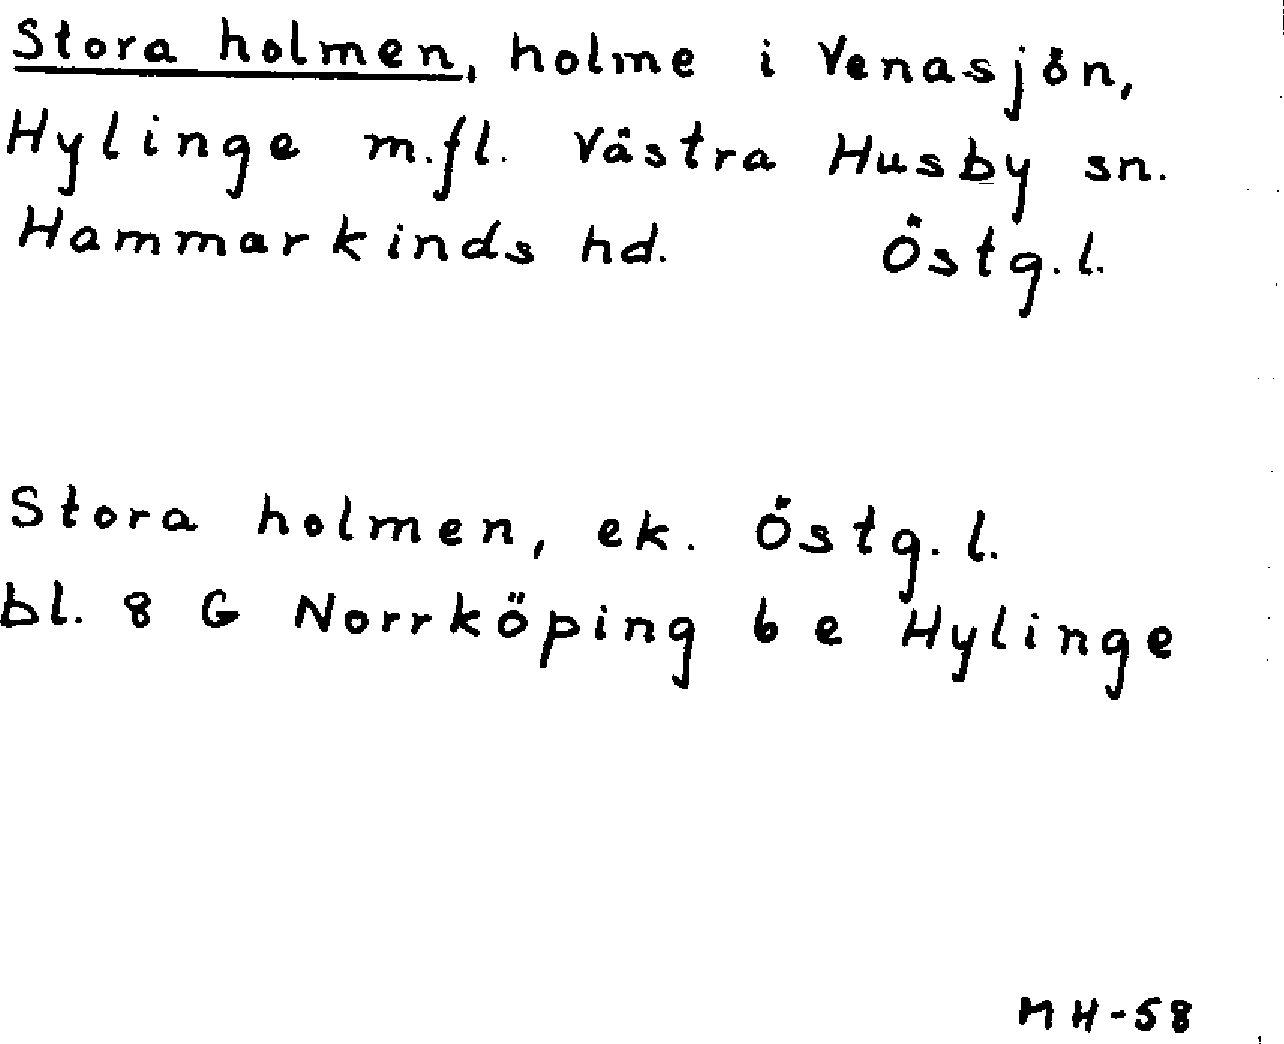 Stora holmen, holme i Venasjön,
Hylinge m.fl. Västra Husby sn.
Hammarkinds hd. Östg.l.
Stora holmen, ek. Östg.l.
bl. 8 G Norrköping 6 e Hylinge
MH-58